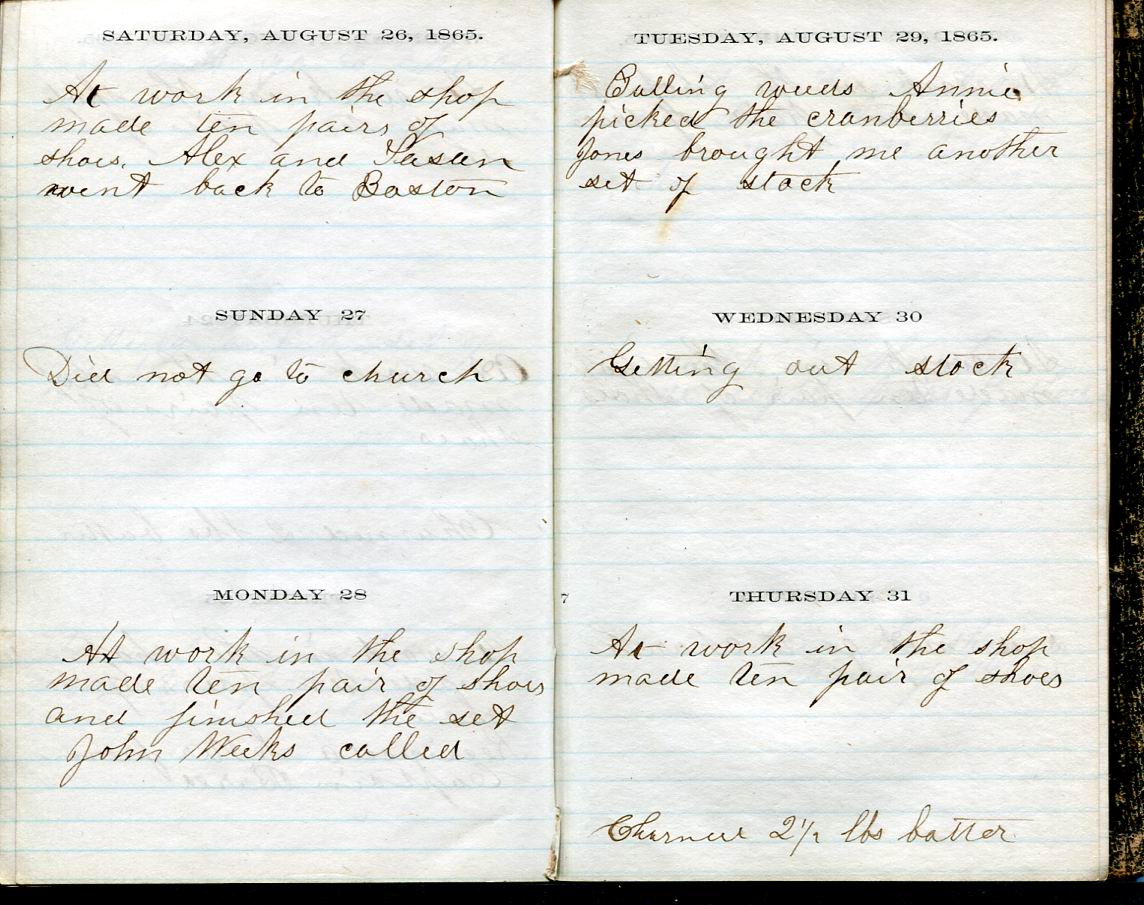 SATURDAY, AUGUST 26, 1865.
At work in the shop
made ten pairs of
shoes. Alex and Susan
went back to Boston
SUNDAY 27
Did not go to church
MONDAY 28
At work in the shop
made ten pair of shoes
and finished the set
John Weeks called
TUESDAY, AUGUST 29, 1865.
Pulling weeds Annie
picked the cranberries
Jones brought me another
set of stock
WEDNESDAY 30
Getting out stock
7
THURSDAY 31
At work in the shop
made ten pair of shoes
Churned 2 1/2 lbs butter